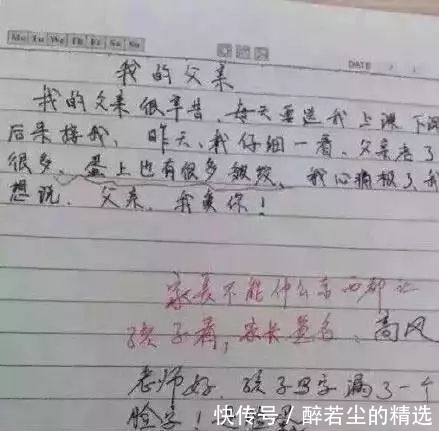 Mo Tu We Th Fr Sa Su
DATE / /
我的父亲
我的父亲很辛苦，每天要送我上课 下课
后来接我，昨天，我仔细一看，父亲老了
很多，蛋上也有很多皱纹，我心痛极了，我
想说，父亲，我爱你！
家长不能什么东西都让
孩子看，家长签名：高风
老师好，孩子写字漏了一个
脸字！
快传号/醉若尘的精选